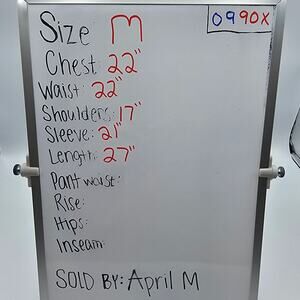 Size M
0990X
Chest: 22"
Waist: 22"
Shoulders: 17"
Sleeve: 21"
Length: 27"
Pant waist:
Rise:
Hips:
Inseam:
SOLD BY: April M